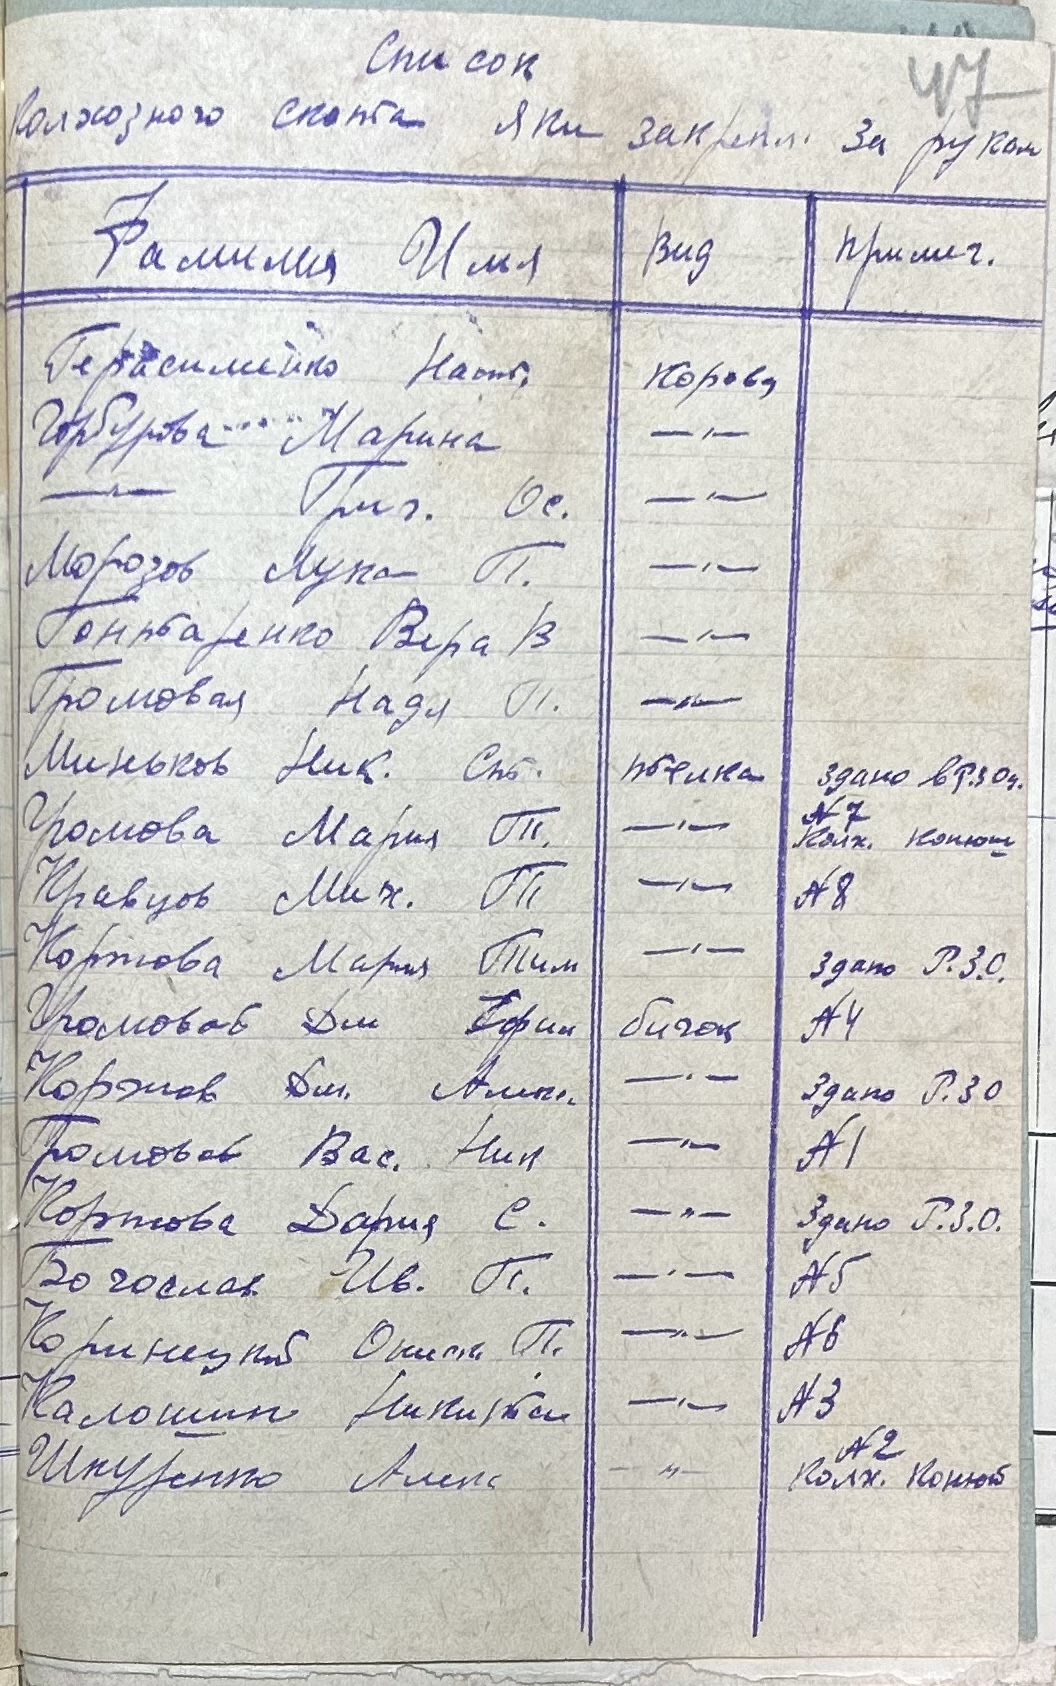 47
Список
Колхозного скота яки закрепл. за рукам
Фамилия Имя Вид Примеч.
Герасименко Наст. Корова
Горбурова Марина —"—
—"— Григ. Ос. —"—
Морозов Лука П. —"—
Гонтаренко Вера В —"—
Громовая Надя П. —"—
Миньков Ник. Ст. телка Здано в Р.З.О.
Громова Мария П. —"— №7
Колх. конюш
Кравцов Мих. П —"— №8
Коржова Мария Тим —"— Здано Р.З.О.
Громовов Дм Ефим бичок №4
Коржов Дм. Алек. —"— Здано Р.З.О
Громовов Вас. Ник —"— №1
Коржова Дария С. —"— Здано Р.З.О.
Богослав Ив. П. —"— №5
П. —"— №6
Калошин Никита —"— №3
Шкуренко Алек —"— №2
Колх. Конюш